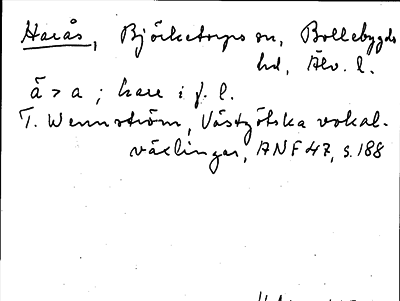 Harås, Björketorps sn, Bollebygds
hd, Älv. l.
ä > a ; hare i f. l.
T. Wennström, Västgötska vokal-
växlingar, ANF 47, s. 188